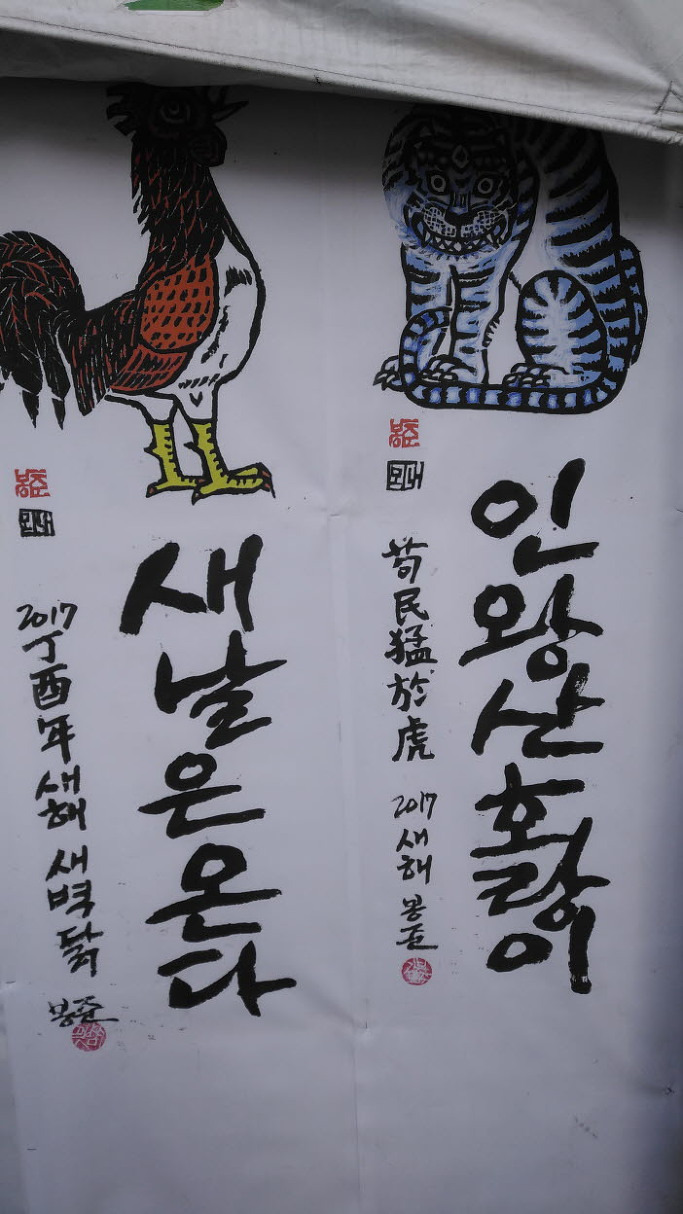 새날은온다
2017 丁酉年 새해 새벽닭 봉준
인왕산호랑이
苟民猛於虎 2017 새해 봉준